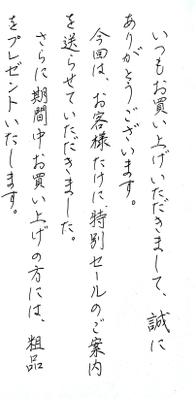 いつもお買い上げいただきまして、誠に
ありがとうございます。
今回は、お客様だけに特別セールのご案内
を送らせていただきました。
さらに期間中お買い上げの方には、粗品
をプレゼントいたします。